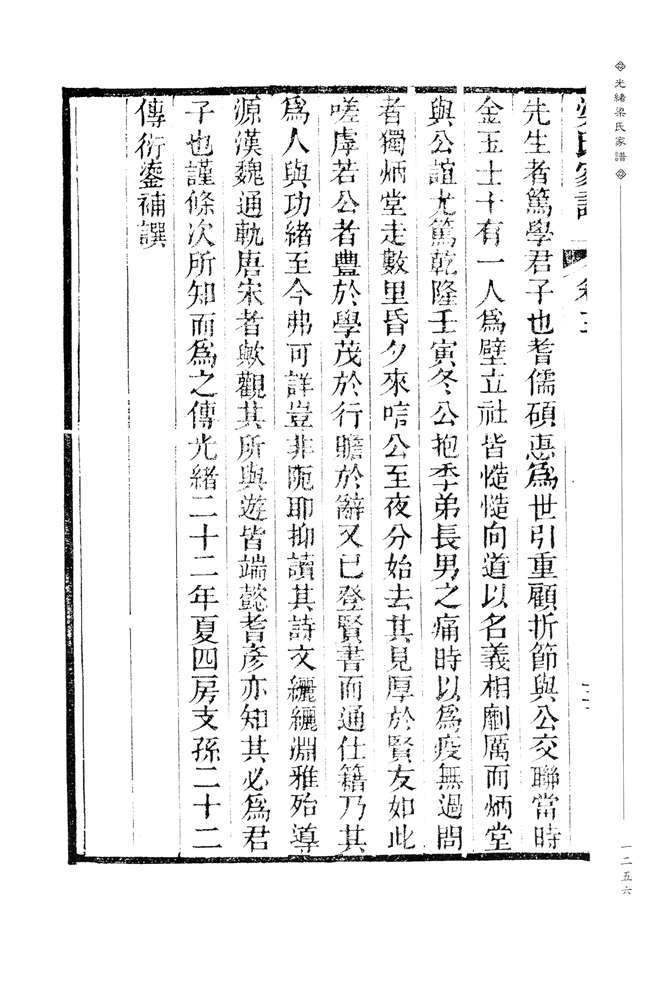 光緒梁氏家譜
先生者篤學君子也耆儒碩悳為世引重顧折節與公交聯當時
金玉士十有一人爲壁立社皆慥慥向道以名義相劘厲而炳堂
與公誼尤篤乾隆壬寅冬公抱季弟長男之痛時以爲疫無過問
者獨炳堂走數里昏夕來唁公至夜分始去其見厚於賢友如此
嗟虖若公者豊於學茂於行贍於辭又已登賢書而通仕籍乃其
爲人與功緒至今弗可詳豈非阨耶抑讀其詩文纚纚淵雅殆導
源漢魏通軌唐宋者歟觀其所與遊皆端懿耆彥亦知其必爲君
子也謹條次所知而爲之傳光緒二十二年夏四房支孫二十二
傳衍鎏補譔
一二五六